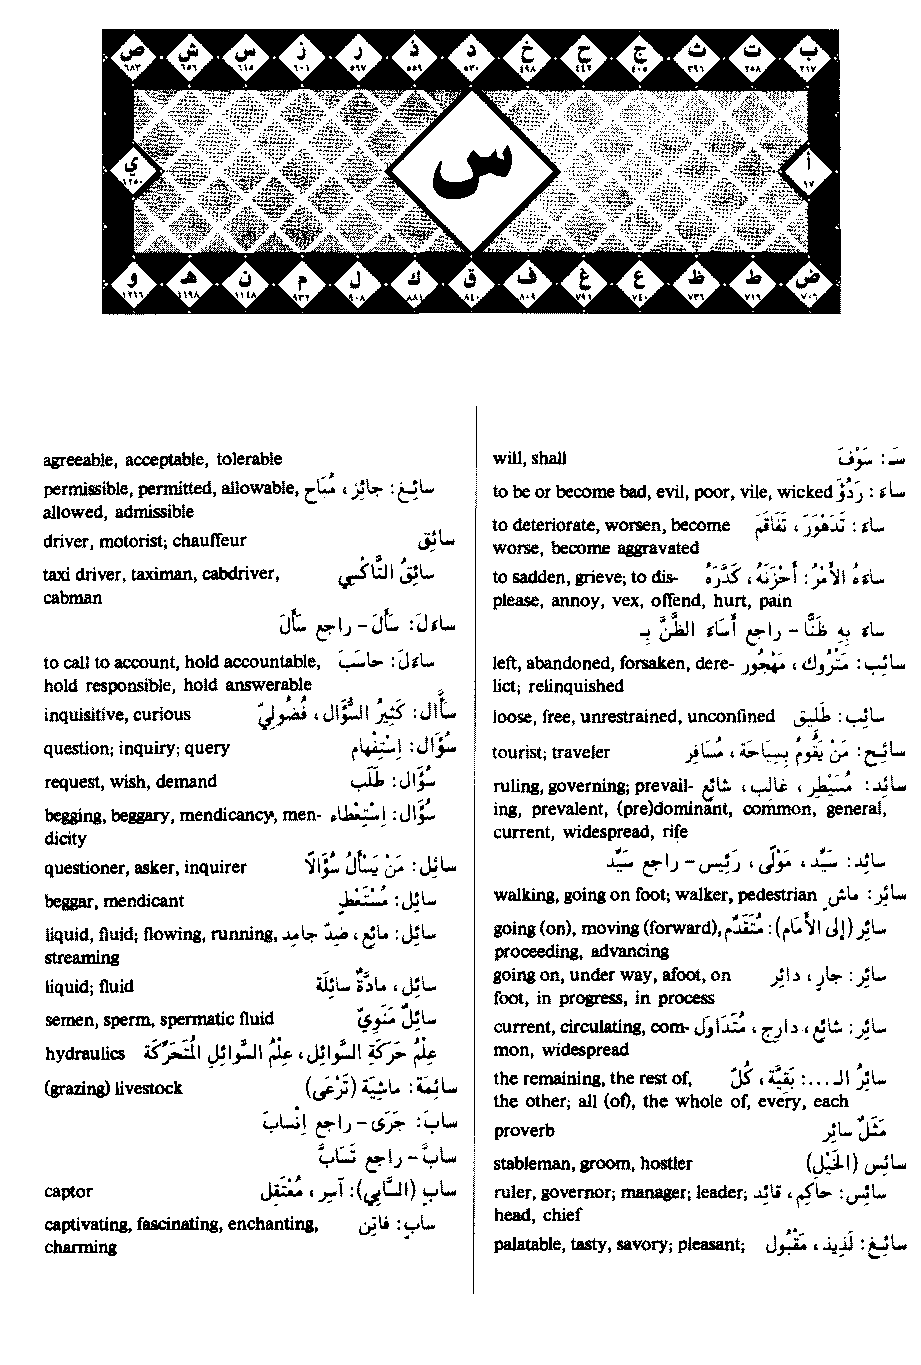 ب ت ث ج ح خ د ذ ر ز س ش ص
٢١٧ ٢٥٨ ٣٩٦ ٤٠٥ ٤٤٢ ٤٩٨ ٥٣٠ ٥٥٩ ٥٦٧ ٦٠١ ٦١٥ ٦٥٦ ٦٨٣
أ س ي
١٧ ١٢٥٠
ض ط ظ ع غ ف ق ك ل م ن هـ و
٧٠٦ ٧١٦ ٧٣٦ ٧٤٠ ٧٩١ ٨٠٩ ٨٤٠ ٨٨١ ٩٠٨ ٩٣٢ ١١٤٨ ١١٩٨ ١٢١٦
سَـ: سَوْفَ will, shall
ساءَ: رَدُؤَ to be or become bad, evil, poor, vile, wicked
ساءَ: تَدَهْوَرَ، تَفَاقَمَ to deteriorate, worsen, become
worse, become aggravated
ساءَهُ الأَمْرُ: أَحْزَنَهُ، كَدَّرَهُ to sadden, grieve; to dis-
please, annoy, vex, offend, hurt, pain
ساءَ بِهِ ظَنًّا - راجع أَسَاءَ الظَّنَّ بِـ
سائِب: مَتْرُوك، مَهْجُور left, abandoned, forsaken, dere-
lict; relinquished
سائِب: طَلِيق loose, free, unrestrained, unconfined
سائِح: مَنْ يَقُومُ بِسِيَاحَة، مُسَافِر tourist; traveler
سائِد: مُسَيْطِر، غالِب، شائِع ruling, governing; prevail-
ing, prevalent, (pre)dominant, common, general,
current, widespread, rife
سائِد: سَيِّد، مَوْلَى، رَئِيس - راجع سَيِّد
سائِر: ماشٍ walking, going on foot; walker, pedestrian
سائِر (إلى الأَمَام): مُتَقَدِّم going (on), moving (forward),
proceeding, advancing
سائِر: جارٍ، دائِر going on, under way, afoot, on
foot, in progress, in process
سائِر: شائِع، دارِج، مُتَدَاوَل current, circulating, com-
mon, widespread
سائِرُ الـ ...: بَقِيَّة، كُلّ the remaining, the rest of,
the other; all (of), the whole of, every, each
مَثَلٌ سائِر proverb
سائِس (الخَيْل) stableman, groom, hostler
سائِس: حاكِم، قائِد ruler, governor; manager; leader;
head, chief
سائِغ: لَذِيذ، مَقْبُول palatable, tasty, savory; pleasant;
agreeable, acceptable, tolerable
سائِغ: جائِز، مُبَاح permissible, permitted, allowable,
allowed, admissible
سائِق driver, motorist; chauffeur
سائِقُ التَّاكْسِي taxi driver, taximan, cabdriver,
cabman
ساءَلَ: سَأَلَ - راجع سَأَلَ
ساءَلَ: حاسَبَ to call to account, hold accountable,
hold responsible, hold answerable
سَأّال: كَثِيرُ السُّؤَال، فُضُولِيّ inquisitive, curious
سُؤَال: إسْتِفْهام question; inquiry; query
سُؤَال: طَلَب request, wish, demand
سُؤَال: إسْتِعْطاء begging, beggary, mendicancy, men-
dicity
سائِل: مَنْ يَسْأَلُ سُؤَالاً questioner, asker, inquirer
سائِل: مُسْتَعْطٍ beggar, mendicant
سائِل: مائِع، ضِدّ جامِد liquid, fluid; flowing, running,
streaming
سائِل، مادَّةٌ سائِلَة liquid; fluid
سائِلٌ مَنَوِيّ semen, sperm, spermatic fluid
عِلْمُ حَرَكَةِ السَّوَائِل، عِلْمُ السَّوَائِلِ المُتَحَرِّكَة hydraulics
سائِمَة: ماشِيَة (تَرْعَى) (grazing) livestock
سابَ: جَرَى - راجع إنْسَابَ
سابَّ - راجع تَسَابَّ
سابٍ (السَّابِي): آسِر، مُعْتَقِل captor
سابٍ: فاتِن captivating, fascinating, enchanting,
charming